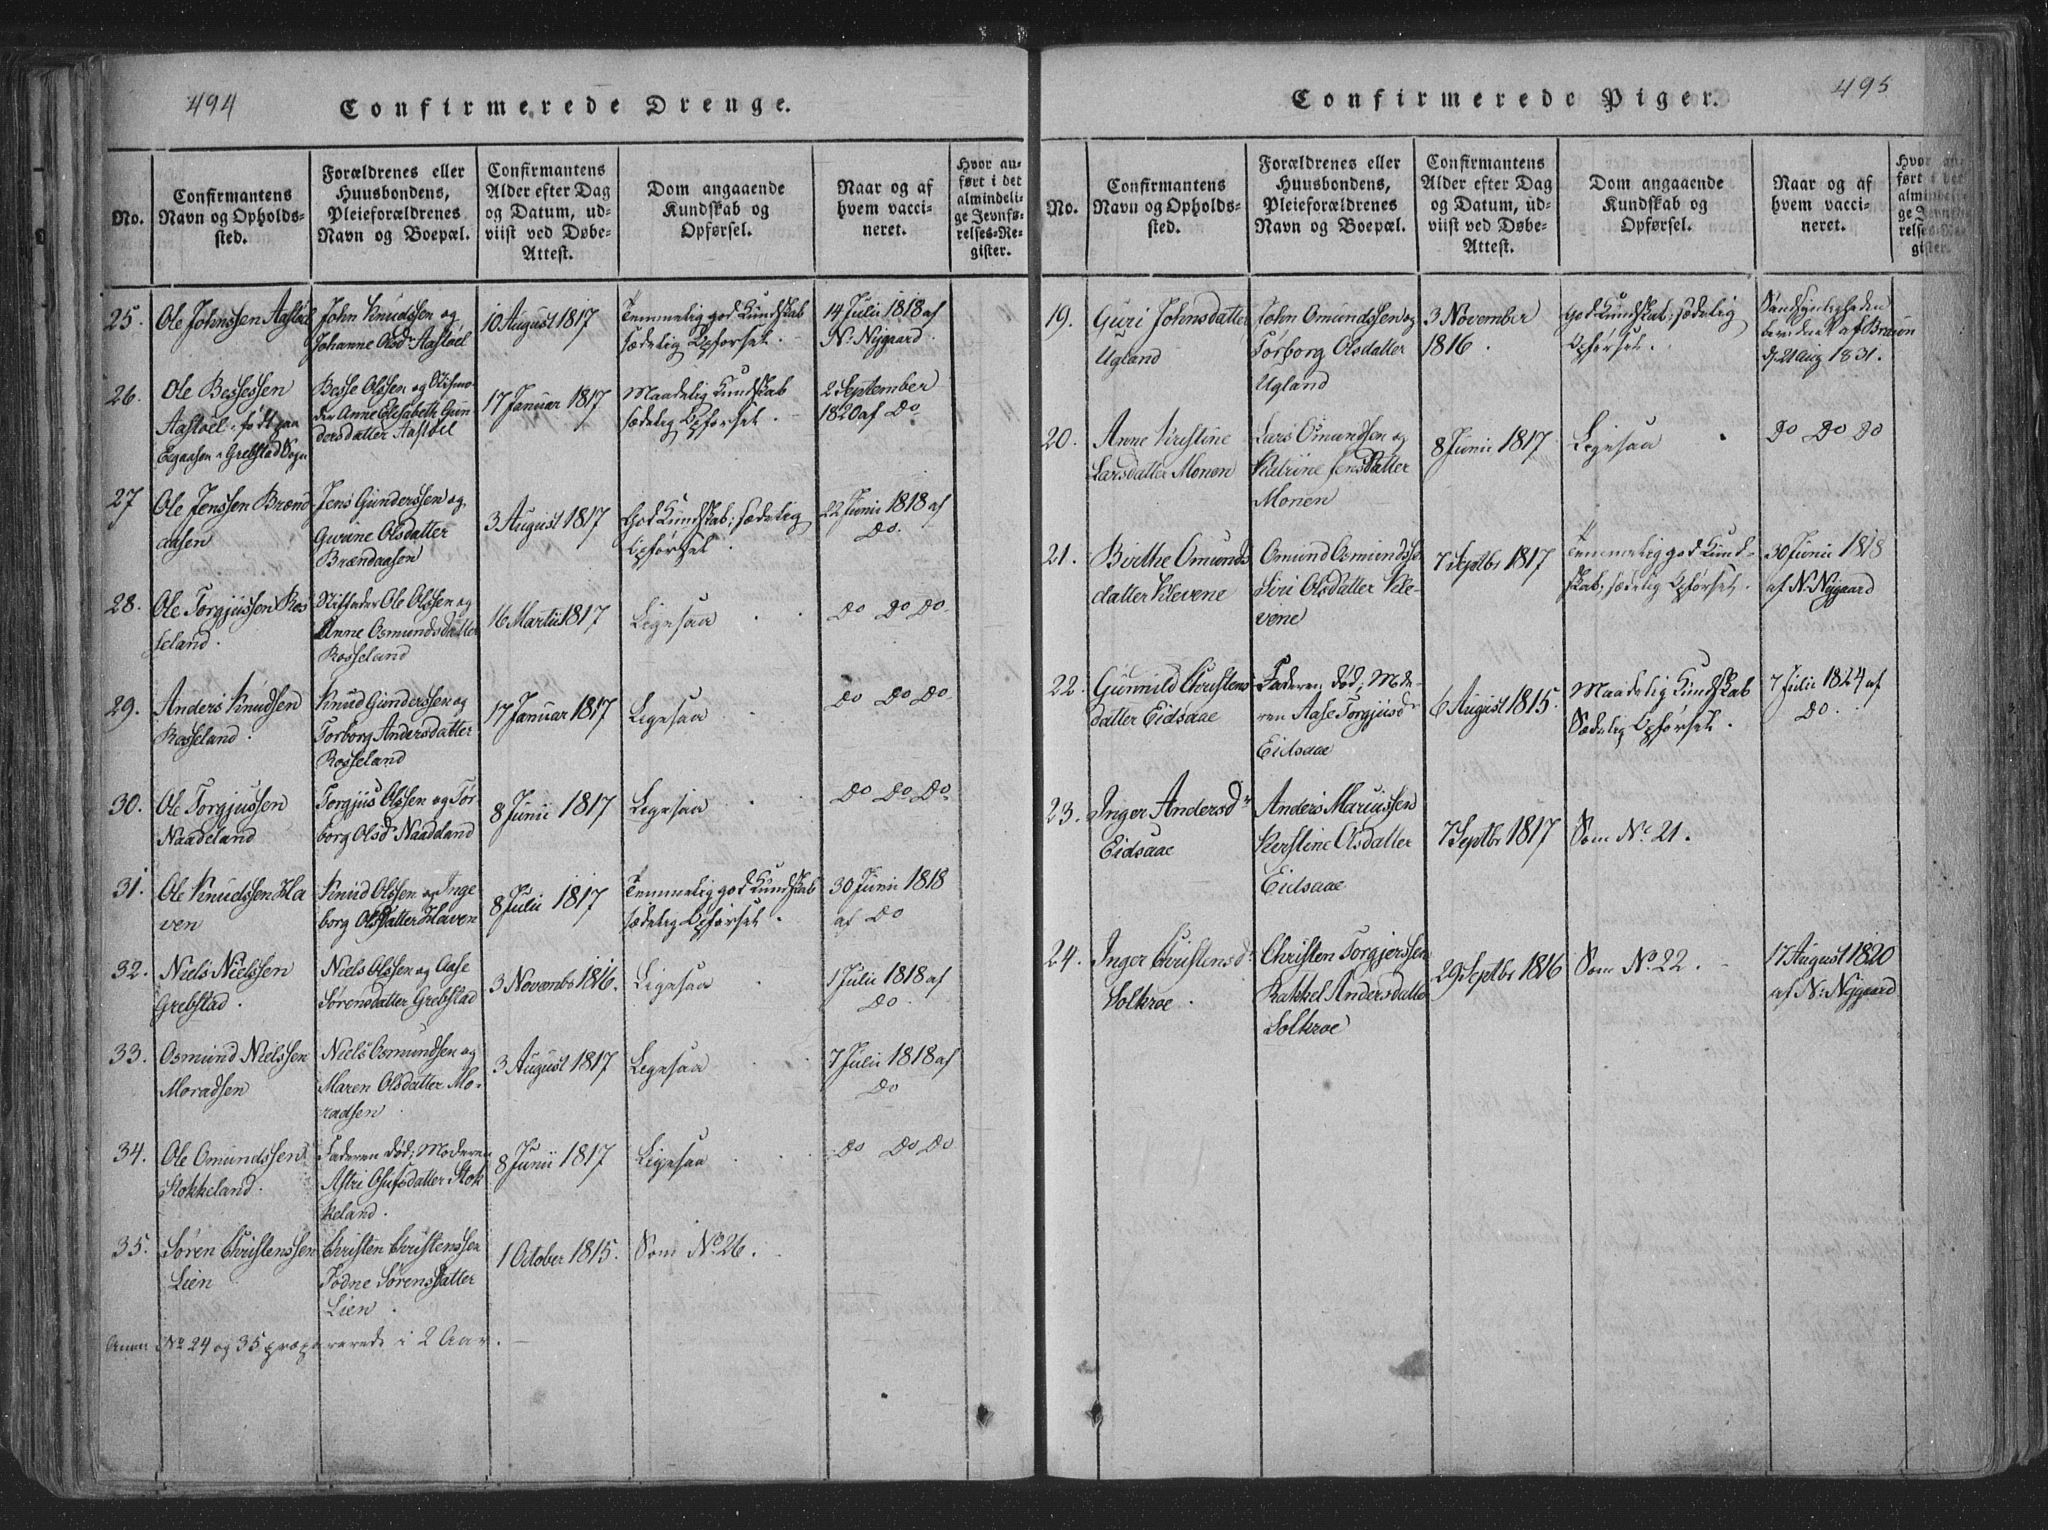 494
Confirmerede Drenge.
No.
Confirmantens
Navn og Opholds-
sted.
Forældrenes eller
Huusbondens,
Pleieforældrenes
Navn og Boepæl.
Confirmantens
Alder efter Dag
og Datum, ud-
viist ved Døbe-
Attest.
Dom angaaende
Kundskab og
Opførsel.
Naar og af
hvem vacci-
neret.
Hvor an-
ført i det
almindeli-
ge Jevnfø-
relses-Re-
gister.
25.
Ole Johnssen Aastøel
John Knudssen og
Johanne Olsd. Aastøel
10 August 1817
Temmelig god Kundskab
sædelig Opførsel.
14 Julii 1818 af
N. Nygaard.
26.
Ole Bessessen
Aastøel, født paa
Egaasen i Grebstad Sogn
Besse Olssen og Stifmo-
der Anne Elisabeth Gun
dersdatter Aastøel
17 Januar 1817
Maadelig Kundskab
sædelig Opførsel.
2 September
1820 af Do
27
Ole Jenssen Brænd
aasen
Jens Gunderssen og
Gurine Olsdatter
Brændaasen
3 August 1817
God Kundskab; sædelig
Opførsel.
22 Junii 1818 af
Do.
28.
Ole Torgjussen Ros
seland.
Stiffader Ole Olssen og
Anne Osmundsdatter
Rosseland
16 Martii 1817
Ligesaa
Do Do Do
29.
Anders Knudsen
Rosseland.
Knud Gunderssen og
Torborg Andersdatter
Rosseland
17 Januar 1817
Ligesaa
Do Do Do
30.
Ole Torgjussen
Naadeland
Torgjus Olssen og Tor
borg Olsd. Naadland
8 Junii 1817
Ligesaa
Do Do Do
31.
Ole Knudssen Ha
ven
Knud Olssen og Inge
borg Olsdatter Haven
8 Julii 1817
Temmelig god Kundskab
sædelig Opførsel.
30 Junii 1818
af Do
32.
Niels Nielssen
Grebstad.
Niels Olssen og Aase
Sørensdatter Grebstad
3 Novembr 1816.
Ligesaa
1 Julii 1818 af
Do.
33.
Osmund Nielssen
Moradsen
Niels Osmundsen og
Maren Olsdatter Mo-
radsen.
3 August 1817
Ligesaa
7 Julii 1818 af
Do
34.
Ole Omundssen
Stokkeland.
Faderen død; Moderen
Astri Olufsdatter Stok
keland.
8 Junii 1817
Ligesaa
Do Do Do
35.
Søren Christenssen
Lien
Christen Christenssen
Todne Sørensdatter
Lien.
1 October 1815.
Som No 26.
Anm No 24 og 35 præparerede i 2 Aar.
495
Confirmerede Piger.
No.
Confirmantens
Navn og Opholds-
sted.
Forældrenes eller
Huusbondens,
Pleieforældrenes
Navn og Boepæl.
Confirmantens
Alder efter Dag
og Datum, ud-
viist ved Døbe-
Attest.
Dom angaaende
Kundskab og
Opførsel.
Naar og af
hvem vacci-
neret.
Hvor an-
ført i det
almindeli-
ge Jevnfø-
relses-Re-
gister.
19.
Guri Johnsdatter
Ugland
John Omundssen og
Torborg Olsdatter
Ugland
3 November
1816.
God Kundskab; sædelig
Opførsel.
Sandsynligheden
bevidnet af Bruun
d. 21 Aug 1831.
20.
Anne Kristine
Larsdatter Monen
Lars Omundsen og
Katrine Jensdatter
Monen
8 Junii 1817
Ligesaa
Do Do Do
21.
Birthe Omunds
datter Klevene
Osmund Osmundsen
Siri Olsdatter Kle-
vene
7 Septbr 1817
Temmelig god Kund-
skab; sædelig Opførsel.
30 Junii 1818
af N. Nygaard
22.
Gunnild Christens
datter Eidsaae
Faderen død; Mode-
ren Aase Torgjusdr
Eidsaae
6 August 1815.
Maadelig Kundskab
Sædelig Opførsel.
7 Julii 1824 af
Do.
23.
Inger Andersdr
Eidsaae
Anders Mariussen
Kerstine Olsdatter
Eidsaae
7 Septbr 1817
Som No 21.
24.
Inger Christensdr
Solkroe.
Christen Torgjerssen
Rakkel Andersdatter
Solkroe
29 Septbr 1816
Som No 22.
17 August 1820
af N. Nygaard